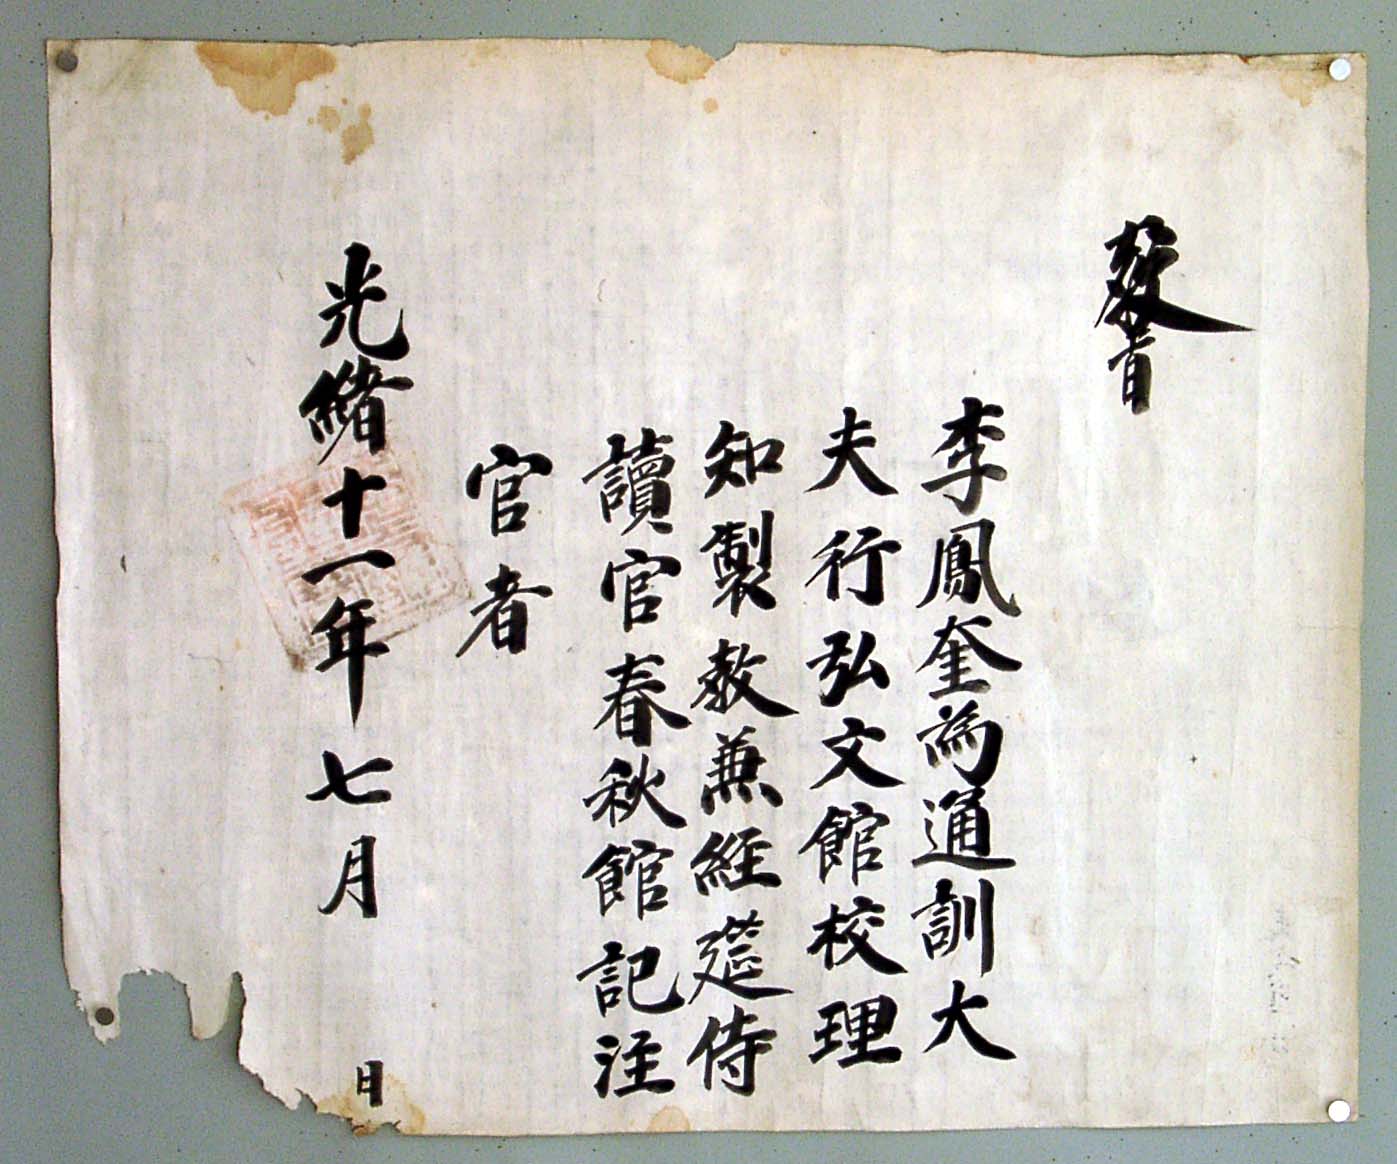 敎旨
李鳳奎為通訓大
夫行弘文館校理
知製敎兼經筵侍
讀官春秋館記注
官者
光緖十一年七月　日